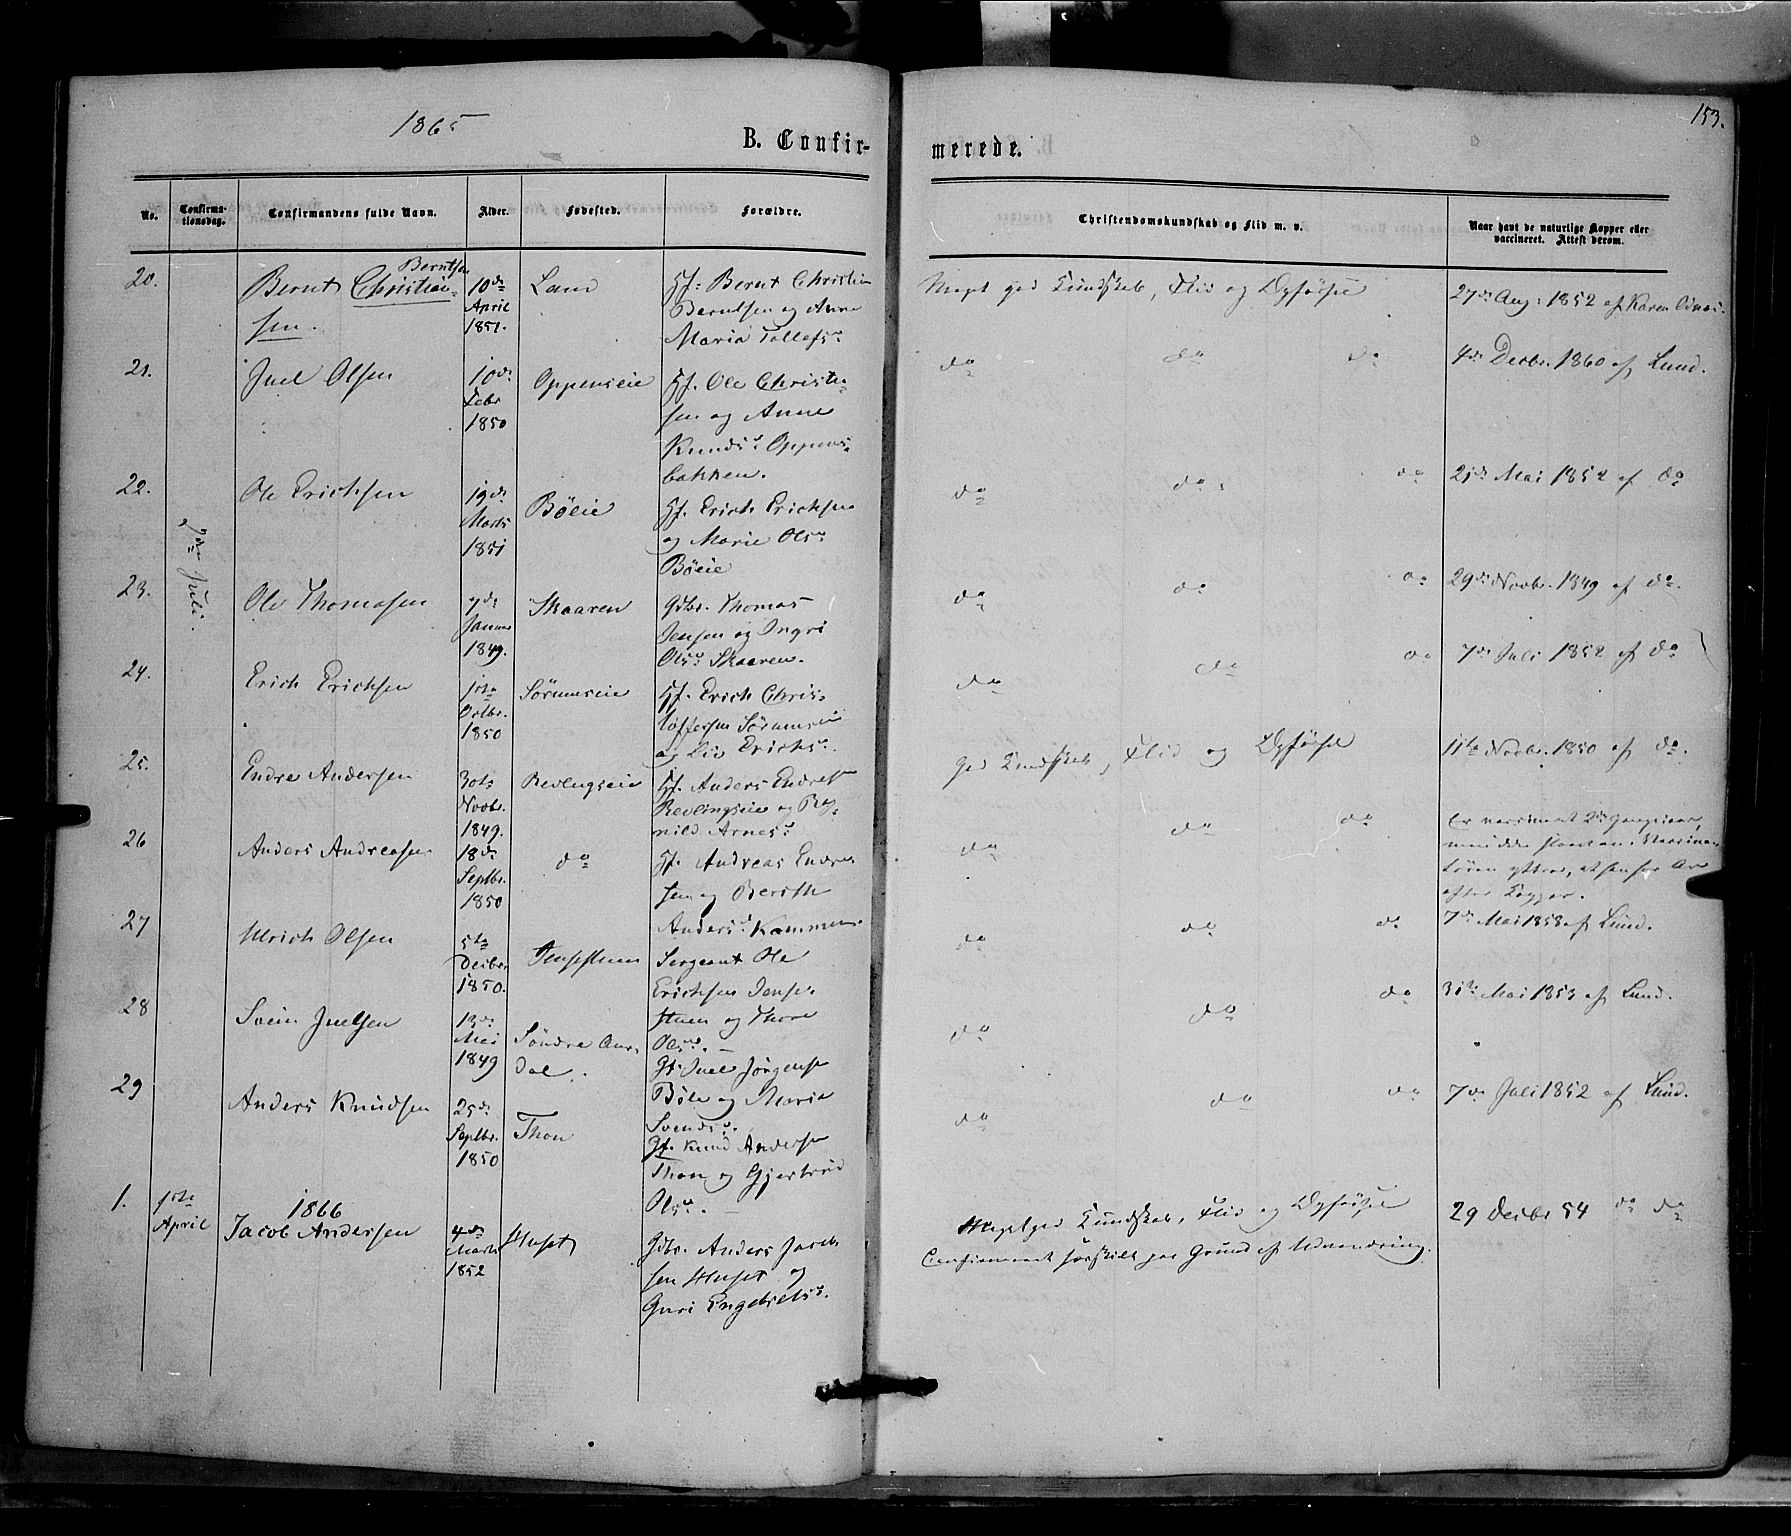 153.
1865
B. Confir-
merede.
No.
Confirma-
tionsdag.
Confirmandens fulde Navn.
Alder.
Fødested.
Forældre.
Christendomskundskab og Flid m. v.
Naar havt de naturlige Kopper eller
vaccineret. Attest derom.
20.
Berntsen
Bernt Christian-
sen.
10de
April
1851.
Land
Hf. Bernt Christian
Berntsen og Anne
Maria Tollefsd.
Meget god Kundskab, Flid og Opførsel
27de Aug: 1852 af Karen Odnæs.
21.
Juel Olsen
10de
Febr
1850
Oppenseie
Hf. Ole Christen-
sen og Anne
Knudsd. Oppens-
bakken.
do do do
4de Decbr. 1860 af Lund.
22.
Ole Erichsen
19de
Marts
1851
Bøeie
Hf. Erich Erichsen
og Marie Olsd.
Bøeie
do do do
21de Mai 1852 af do
7de Juli.
23.
Ole Thomasen
7de
Januar
1849.
Skaaren
Gdbr. Thomas
Jensen og Ingri
Olsd. Skaaren.
do do do
29de Novbr. 1849 af do.
24.
Erich Erichsen
1ste
Octbr.
1850
Sørumseie
Hf. Erich Chris-
toffersen Sørumseie
og Liv Erichsd.
do do do
7de Juli 1852 af do
25.
Endre Andersen
30te
Novbr.
1849.
Revlingseie
Hf. Anders Endresen
Revlingseie og Rag-
nild Arnesd.
God Kundskab, Flid og Opførsel
11te Novbr. 1850 af do.
26
Anders Andreasen
18de
Septbr.
1850
do
Hf. Andreas Endre-
sen og Berith
Andersd. Kammen
do do do
Er vaccineret 2de Gange
efter Kopper.
27
Ulrich Olsen
5te
Decbr.
1850.
Sergeant Ole
Erichsen Jense-
stuen og Thore
Olsd.
do do do
7de Mai 1858 af Lund.
28
Svein Juelsen
13de
Mai
1849
Søndre Aur-
dal.
Gf. Juel Jørgensen
Bøle og Maria
Svendsd.
do do do
31te Mai 1853 af Lund.
29
Anders Knudsen
25de
Septbr.
1850
Thon
Gf. Knud Andersen
Thon og Gjertrud
Olsd.
do do do
7de Juli 1852 af Lund.
1.
1ste
April
1866
Jacob Andersen
4de
Marts
1852
Huset
Gdbr. Anders Jacob-
sen Huset og
Guri Engebretsd.
Meget god Kundskab, Flid og Opførsel
Confirmeret særskilt paa Grund af Udvandring.
29 Decbr 54 do do